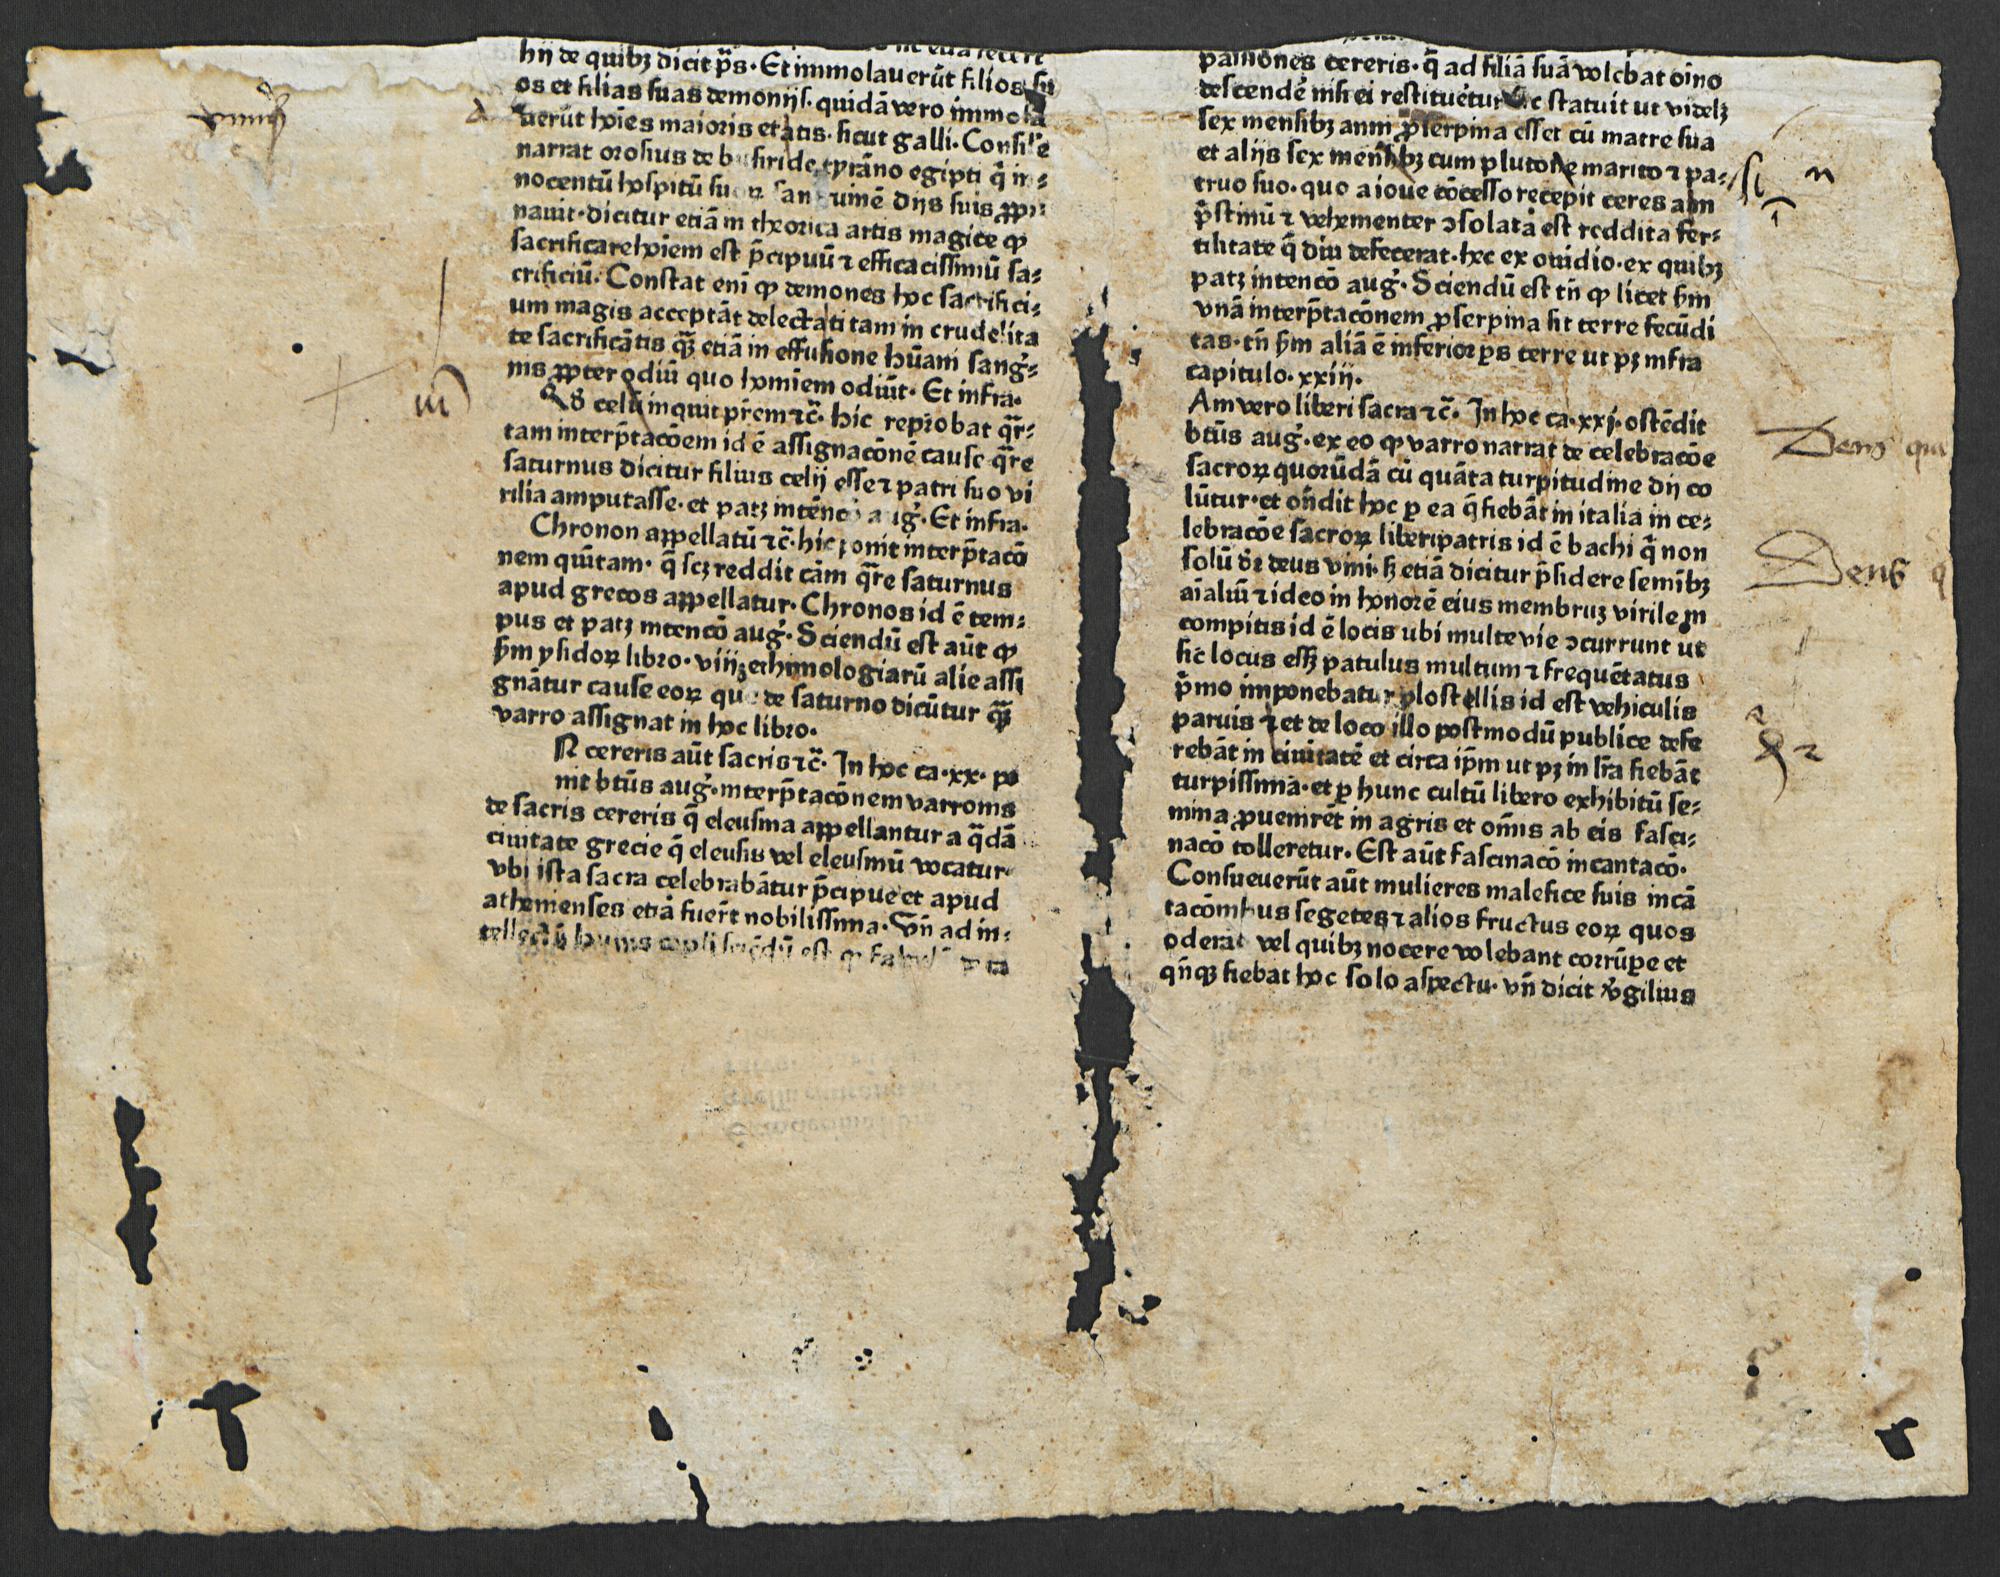 hij de quibꝫ dicit p̄s · Et immolauerūt filios su
os et filias suas demonijs · quidā vero immola
uerūt hoīes maioris etatis · sicut galli · Consil'e
narrat orosius de busiride tyrāno egipti q̄ in⸗
nocentū hospitū suoꝝ sanguinē dijs suis ꝓpi
nauit · dicitur etiā in theorica artis magice ꝙ
sacrificare hoīem est p̄cipuū ⁊ efficacissimū sa⸗
crificiū · Constat eni ꝙ demones hoc sacrifici⸗
um magis acceptāt delectati tam in crudelita
te sacrificātis qȝ̄ etiā in effusione hūam sang̓⸗
nis ꝓpter odiū quo hominem odiūt · Et infra ·
Qd̄ celū inquit p̄rem ⁊c̄ · hic reprobat qr̄⸗
tam interp̄tacōem id ē assignacōnē cause qr̄e
saturnus dicitur filius celij esse ⁊ patri suo vi
rilia amputasse · et patꝫ intēncō aug̓ · Et infra ·
Chronon appellatū ⁊c̄ · hic ponit interp̄tacō
nem quītam · q̄ scꝫ reddit cām qr̄e saturnus
apud grecos appellatur · Chronos id ē tem⸗
pus et patꝫ intencō aug̓ · Sciendū est aūt ꝙ
s̄m ysidoꝝ libro · viij ethimologiarū alie assi
gnātur cause eoꝝ que de saturno dicūtur qȝ̄
varro assignat in hoc libro ·
N cereris aūt sacris ⁊c̄ · In hoc ca · xx · po
nit btūs aug̓ · interp̄tacōnem varronis
de sacris cereris q̄ eleusina appellantur a q̄dā
ciuitate grecie q̄ eleusis vel eleusinū vocatur
vbi ista sacra celebrabātur p̄cipue et apud
athenienses etiā fuer̄t nobilissima · Vn̄ ad in⸗
tellectū huius capli sciēdū est ꝙ
passiones cereris · q̄ ad filiā suā volebat oīno
descendē nisi ei restituētur statuit ut videlꝫ
sex mensibꝫ anni ꝓserpina esset cū matre sua
et alijs sex mensibꝫ cum plutone marito ⁊ pa⸗
truo suo · quo a ioue cōcesso recepit ceres aīm
p̄stinū ⁊ vehementer ꝯsolata est reddita fer⸗
tilitate q̄ diu defecerat · hec ex ouidio · ex quibꝫ
patꝫ intencō aug̓ · Sciendū est tn̄ ꝙ licet s̄m
vnā interp̄tacōnem ꝓserpina sit terre fecūdi
tas · tn̄ s̄m aliā ē inferior ꝑs terre ut pꝫ infra
capitulo · xxiij ·
Am vero liberi sacra ⁊c̄ · In hoc ca · xxj · ostēdit
btūs aug̓ · ex eo ꝙ varro narrat de celebracōe
sacroꝝ quorūdā cū quāta turpitudine dij co
lūtur · et on̄dit hoc ꝑ ea q̄ fiebāt in italia in ce⸗
lebracōe sacroꝝ liberi patris id ē bachi q̄ non
solū dr̄ deus vini · sꝫ etiā dicitur p̄sidere seminibꝫ
aīaliū ⁊ ideo in honorē eius membruꝫ virile in
compitis id ē locis ubi multe vie ꝯcurrunt ut
sic locus essꝫ patulus multum ⁊ frequētatus
p̄mo imponebatur plostellis id est vehiculis
paruis ⁊ et de loco illo postmodū publice defe
rebāt in ciuitatē et circa ip̄m ut pꝫ in lr̄a fiebāt
turpissima · et ꝑ hunc cultū libero exhibitū se⸗
mina ꝓuenirēt in agris et om̄is ab eis fasci⸗
nacō tolleretur · Est aūt fascinacō incantacō ·
Consueuerūt aūt mulieres malefice suis incā
tacōnibus segetes ⁊ alios fructus eoꝝ quos
oderāt vel quibꝫ nocere volebant corrūpe et
qn̄qꝫ fiebat hoc solo aspectu · vn̄ dicit v̓gilius
Deus
Deus q